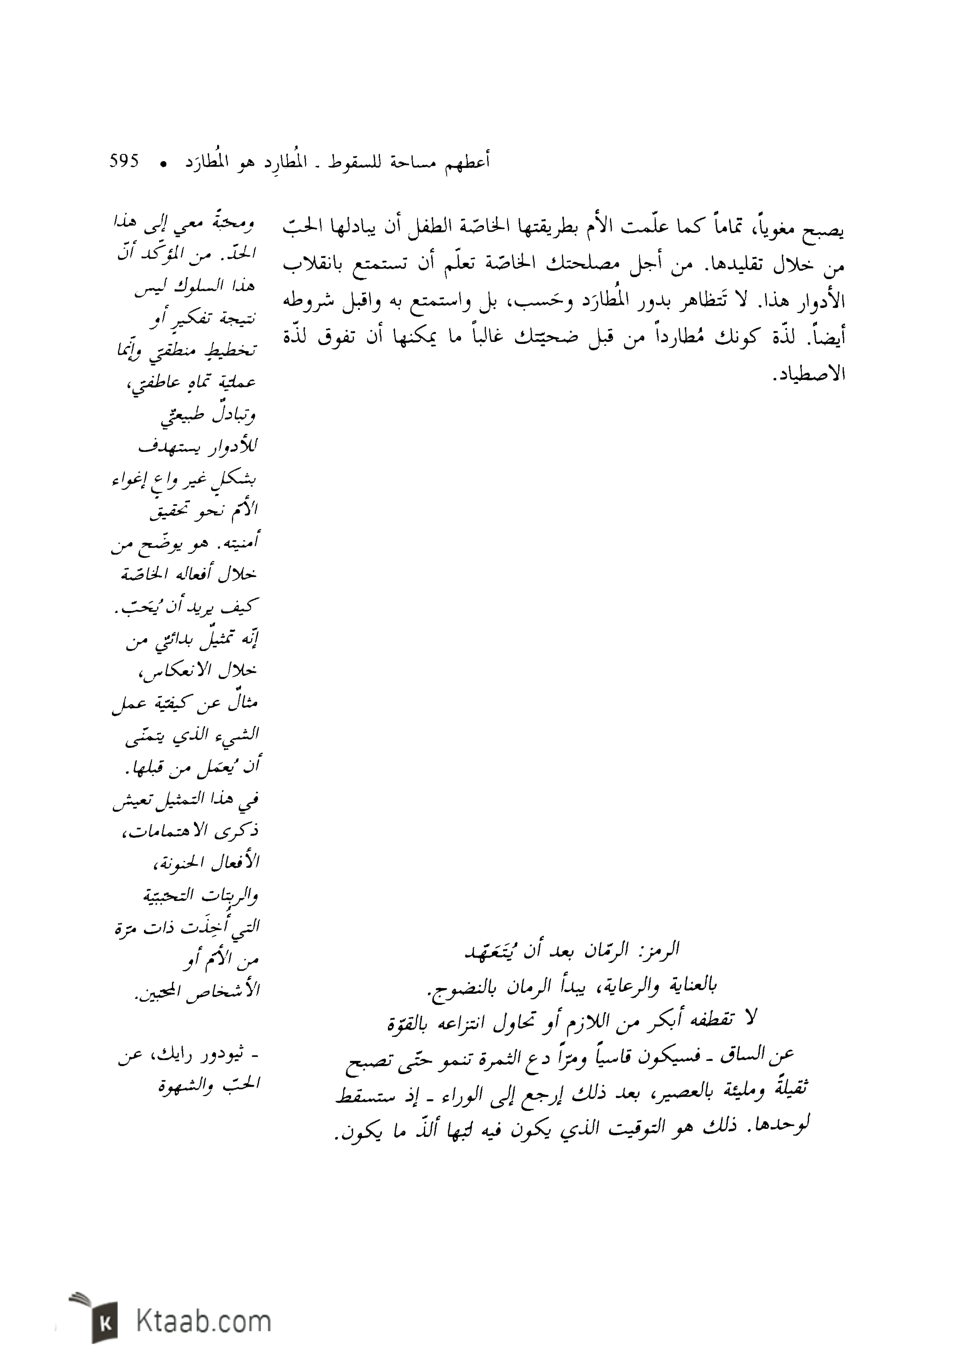 أعطهم مساحة للسقوط ـ المُطارِد هو المُطارَد • 595
يصبح مغوياً، تماماً كما علّمت الأم بطريقتها الخاصّة الطفل أن يبادلها الحبّ
من خلال تقليدها. من أجل مصلحتك الخاصّة تعلّم أن تستمتع بانقلاب
الأدوار هذا. لا تَتظاهر بدور المُطارَد وحَسب، بل واستمتع به واقبل شروطه
أيضاً. لذّة كونك مُطارداً من قبل ضحيّتك غالباً ما يمكنها أن تفوق لذّة
الاصطياد.
الرمز: الرمّان بعد أن يُتَعَهّد
بالعناية والرعاية، يبدأ الرمان بالنضوج.
لا تقطفه أبكر من اللازم أو تحاول انتزاعه بالقوّة
عن الساق ـ فسيكون قاسياً ومرّاً دع الثمرة تنمو حتّى تصبح
ثقيلةً ومليئة بالعصير، بعد ذلك إرجع إلى الوراء ـ إذ ستسقط
لوحدها. ذلك هو التوقيت الذي يكون فيه لبّها ألذّ ما يكون.
ومحبّةً معي إلى هذا
الحدّ. من المؤكّد أنّ
هذا السلوك ليس
نتيجة تفكيرٍ أو
تخطيطٍ منطقيّ وإنّما
عمليّة تماهٍ عاطفيّ،
وتبادلٌ طبيعيٌّ
للأدوار يستهدف
بشكلٍ غير واعٍ إغواء
الأمّ نحو تحقيق
أمنيته. هو يوضّح من
خلال أفعاله الخاصّة
كيف يريد أن يُحَبّ.
إنّه تمثيلٌ بدائيٌّ من
خلال الانعكاس،
مثالٌ عن كيفيّة عمل
الشيء الذي يتمنّى
أن يُعمَل من قبلها.
في هذا التمثيل تعيش
ذكرى الاهتمامات،
الأفعال الحنونة،
والربتات التحبّبيّة
التي أُخِذَت ذات مرّة
من الأمّ أو
الأشخاص المحبّين.
ـ ثيودور رايك، عن
الحبّ والشهوة
Ktaab.com